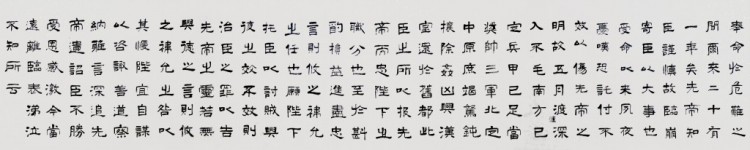 奉命於危難之
間爾來二十有
一年矣先帝知
臣謹慎故臨崩
寄臣以大事也
受命以來夙夜
憂嘆恐託付不
效以傷先帝之
明故五月渡深
入不毛南方已
定兵甲已足當
獎帥三軍北定
中原庶竭駑鈍
攘除姦凶興漢
室還於舊都此
臣之所以報先
帝而忠陛下之
職分也至於斟
酌損益進盡忠
言則攸之禕允
之任也願陛下
託臣以討賊興
復之效不效則
治臣之罪以告
先帝之靈若無
興德之言則攸
之禕允以咎
其慢陛宜自謀
以咨諏善道察
納雅言深追先
帝遺詔臣不勝
受恩感激今當
遠離臨表涕泣
不知所云